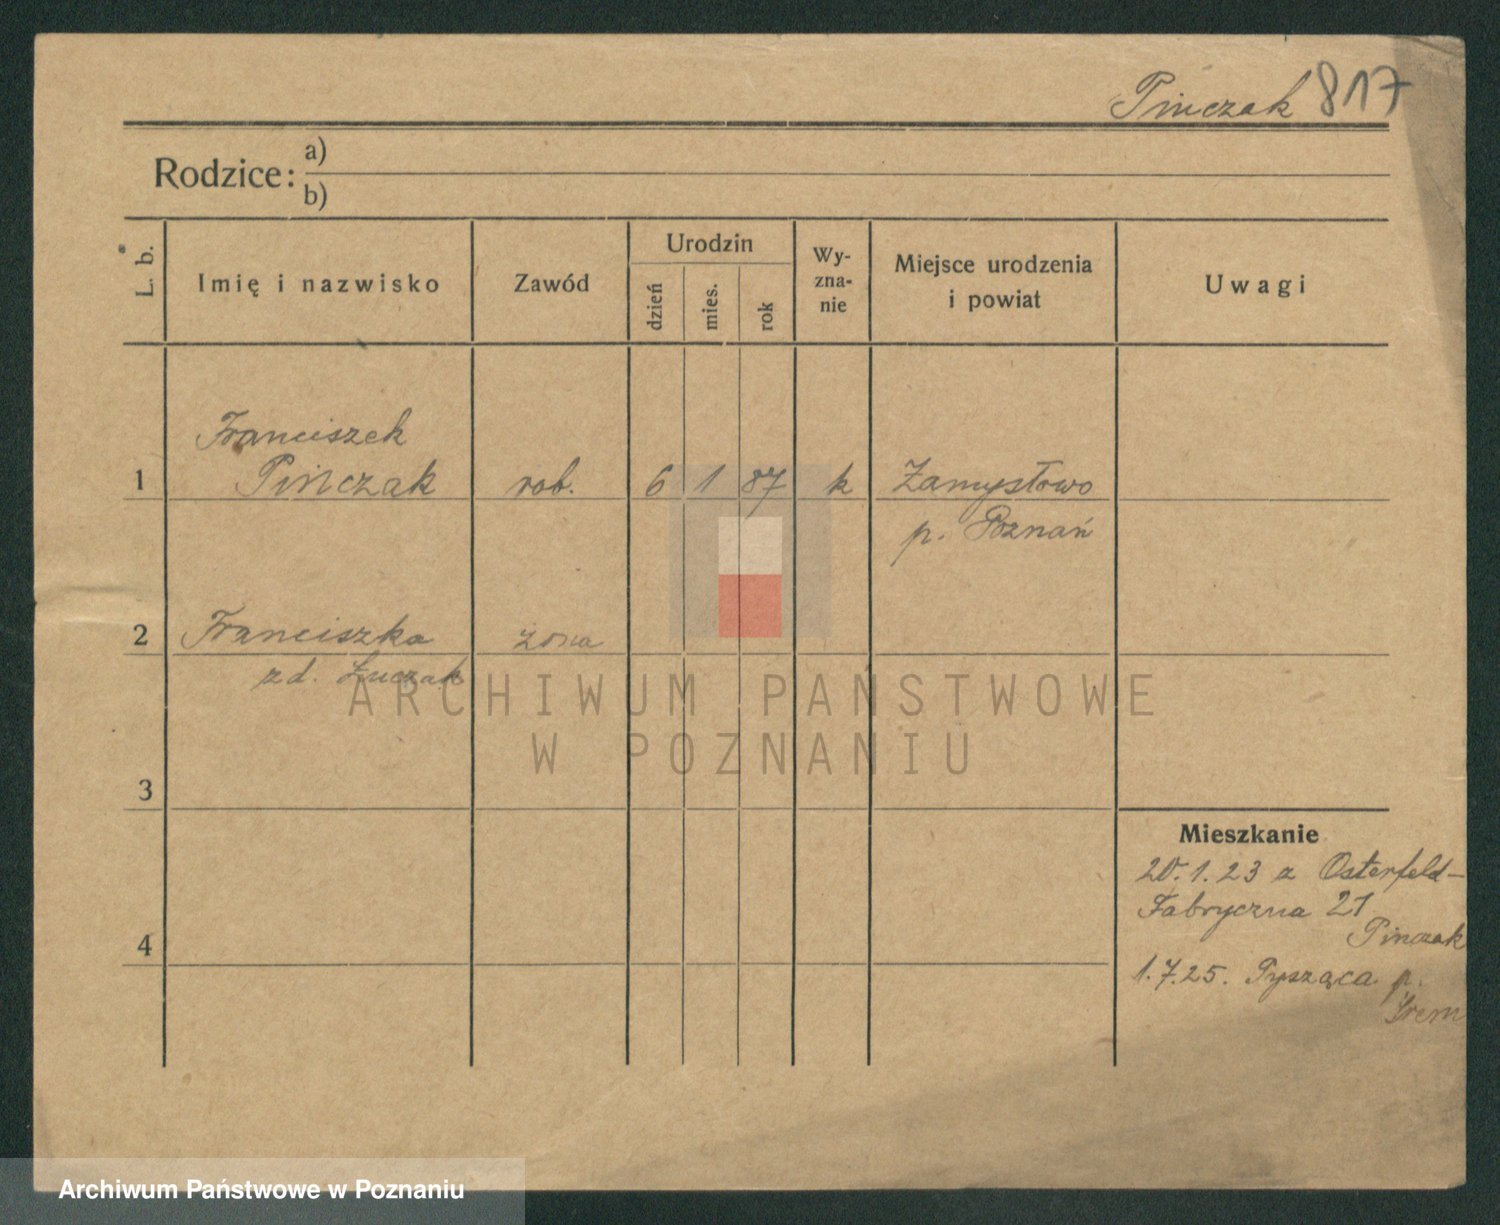 Pińczak 817
Rodzice: a)
b)
L. b.
Imię i nazwisko
Zawód
Urodzin
dzień
mies.
rok
Wy-
zna-
nie
Miejsce urodzenia
i powiat
Uwagi
Franciszek
1 Pińczak rob. 6 1 87 k Zamysłowo
p. Poznań
2 Franciszka żona
zd. Łuczak
3
4
Mieszkanie
20.1.23 z Osterfeld-
Fabryczna 21
Pinczak
1.7.25. Pysząca p.
Śrem
ARCHIWUM PAŃSTWOWE
W POZNANIU
Archiwum Państwowe w Poznaniu